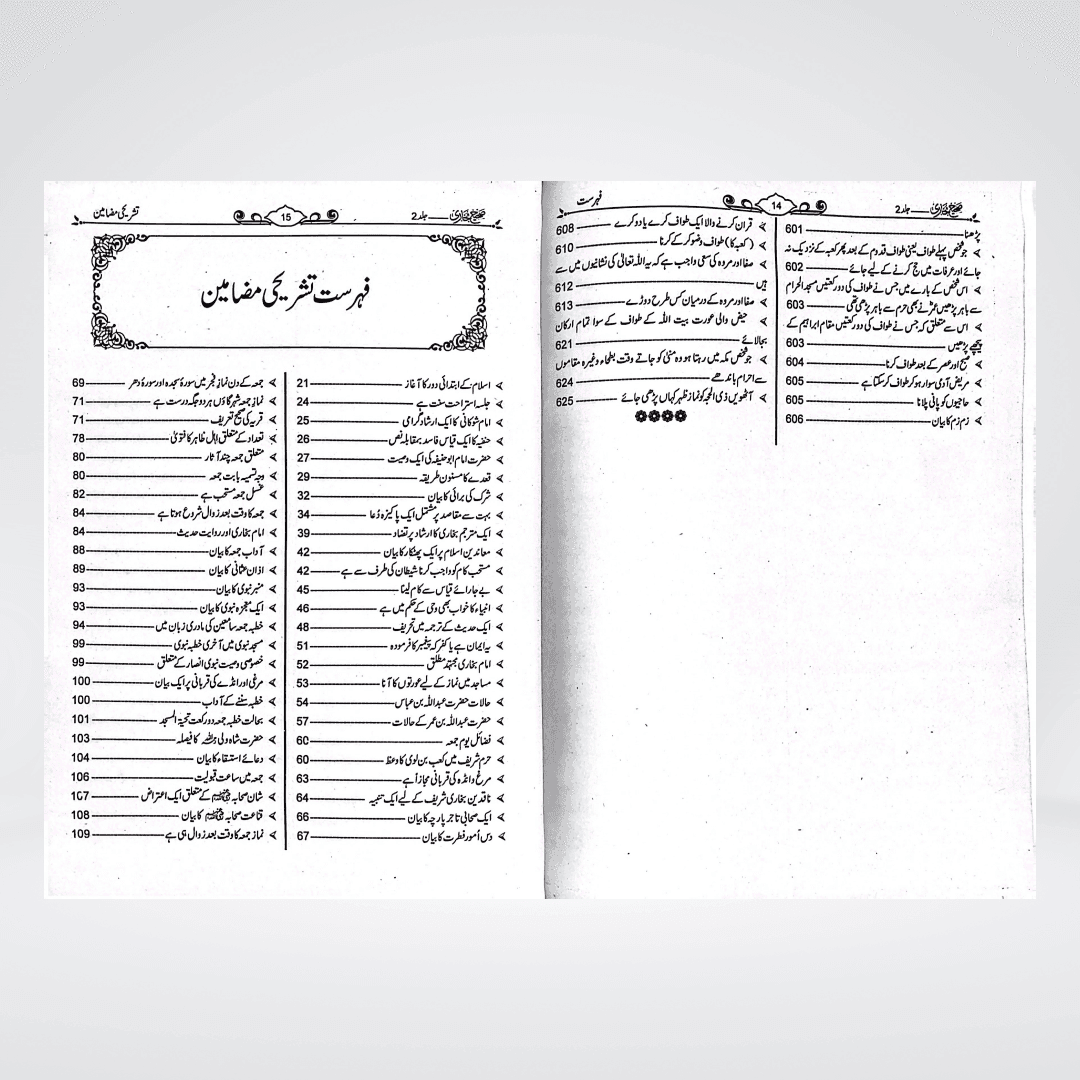 صحیح بخاری جلد 2
14
فہرست
پڑھنا 601
جو شخص پہلے طواف یعنی طواف قدوم کے بعد پھر کعبہ کے نزدیک نہ
جائے اور عرفات میں حج کرنے کے لیے جائے 602
اس شخص کے بارے میں جس نے طواف کی دو رکعتیں مسجد الحرام
سے باہر پڑھیں عمرؓ نے بھی حرم سے باہر پڑھی تھی 603
اس سے متعلق کہ جس نے طواف کی دو رکعتیں مقام ابراہیم کے
پیچھے پڑھیں 603
صبح اور عصر کے بعد طواف کرنا 604
مریض آدمی سوار ہو کر طواف کر سکتا ہے 605
حاجیوں کو پانی پلانا 605
زمزم کا بیان 606
قران کرنے والا ایک طواف کرے یا دو کرے 608
(کعبہ کا) طواف وضو کر کے کرنا 610
صفا اور مروہ کی سعی واجب ہے کہ یہ اللہ تعالیٰ کی نشانیوں میں سے
ہیں 612
صفا اور مروہ کے درمیان کس طرح دوڑے 613
حیض والی عورت بیت اللہ کے طواف کے سوا تمام ارکان
بجا لائے 621
جو شخص مکہ میں رہتا ہو وہ منیٰ کو جاتے وقت بطحاء وغیرہ مقاموں
سے احرام باندھے 624
آٹھویں ذی الحجہ کو نماز ظہر کہاں پڑھی جائے 625
صحیح بخاری جلد 2
15
تشریحی مضامین
فہرست تشریحی مضامین
اسلام کے ابتدائی دور کا آغاز 21
جلسہ استراحت سنت ہے 24
امام شوکانی کا ایک ارشاد گرامی 25
حنفیہ کا ایک قیاس فاسد بمقابلہ نص 26
حضرت امام ابو حنیفہ کی ایک وصیت 27
قعدے کا مسنون طریقہ 29
شرک کی برائی کا بیان 32
بہت سے مقاصد پر مشتمل ایک پاکیزہ دعا 34
ایک مترجم بخاری کا ارشاد پر تضاد 39
معاندین اسلام پر ایک پھٹکار کا بیان 42
مستحب کام کو واجب کرنا شیطان کی طرف سے ہے 42
بے جا رائے قیاس سے کام لینا 45
انبیاء کا خواب بھی وحی کے حکم میں ہے 46
ایک حدیث کے ترجمہ میں تحریف 48
یہ ایمان ہے یا کفر کہ پیغمبر کا فرمودہ 51
امام بخاری مجتہد مطلق 52
مساجد میں نماز کے لیے عورتوں کا آنا 53
حالات حضرت عبداللہ بن عباس 54
حضرت عبداللہ بن عمر کے حالات 57
فضائل یوم جمعہ 60
حرم شریف میں کعب بن لوی کا وعظ 60
مرغ وانڈہ کی قربانی مجازاً ہے 63
ناقدین بخاری شریف کے لیے ایک تنبیہ 64
ایک صحابی تاجر پارچہ کا بیان 66
دس امور فطرت کا بیان 67
جمعہ کے دن نماز فجر میں سورۂ سجدہ اور سورۂ دھر 69
نماز جمعہ شہر گاؤں ہر دو جگہ درست ہے 71
قریہ کی صحیح تعریف 71
تعداد کے متعلق اہل ظاہر کا فتویٰ 78
متعلق جمعہ چند آثار 80
وجہ تسمیہ بابت جمعہ 80
غسل جمعہ مستحب ہے 82
جمعہ کا وقت بعد زوال شروع ہوتا ہے 84
امام بخاری اور روایت حدیث 84
آداب جمعہ کا بیان 88
اذان عثمانی کا بیان 89
منبر نبوی کا بیان 93
ایک معجزہ نبوی کا بیان 93
خطبہ جمعہ سامعین کی مادری زبان میں 94
مسجد نبوی میں آخری خطبہ نبوی 99
خصوصی وصیت نبوی انصار کے متعلق 99
مرغی اور انڈے کی قربانی پر ایک بیان 100
خطبہ سننے کے آداب 100
بحالت خطبہ جمعہ دو رکعت تحیۃ المسجد 101
حضرت شاہ ولی اللہ کا فیصلہ 103
دعائے استسقاء کا بیان 104
جمعہ میں ساعت قبولیت 106
شان صحابہ کے متعلق ایک اعتراض 107
قناعت صحابہ کا بیان 108
نماز جمعہ کا وقت بعد زوال ہی ہے 109